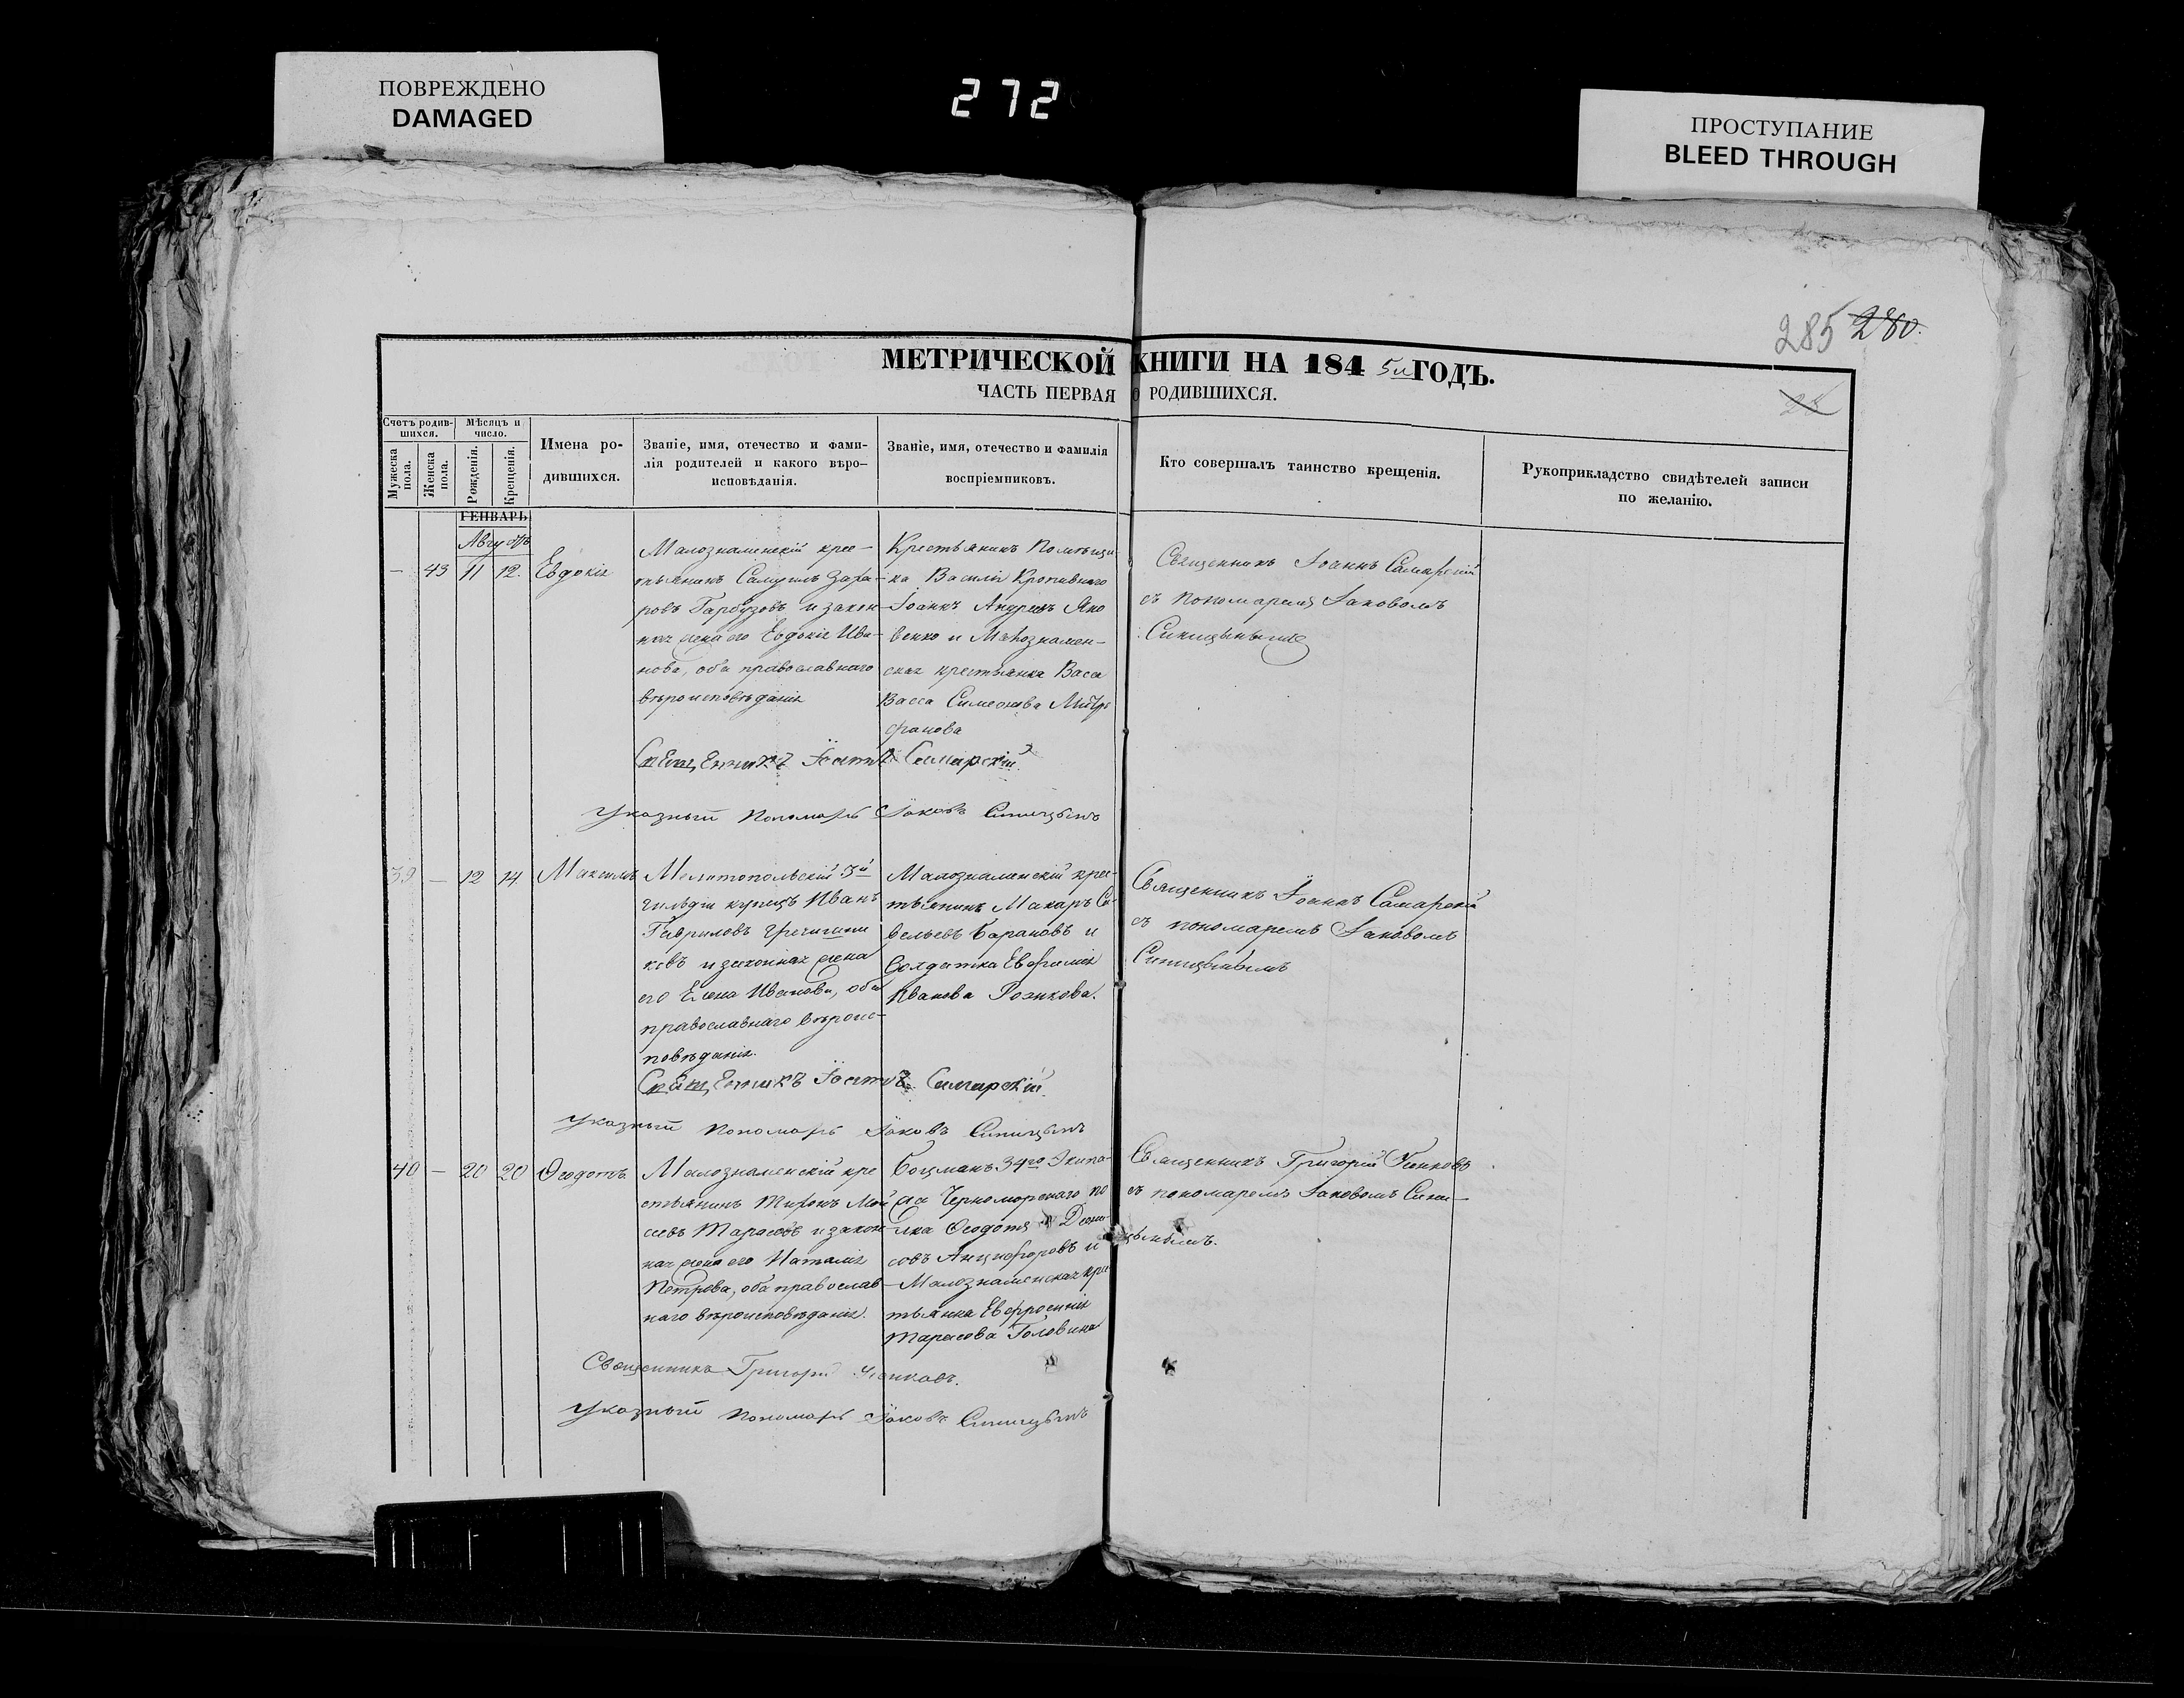 ПОВРЕЖДЕНО
DAMAGED
272
ПРОСТУПАНИЕ
BLEED THROUGH
285 280.
МЕТРИЧЕСКОЙ КНИГИ НА 184 5й ГОДЪ.
ЧАСТЬ ПЕРВАЯ О РОДИВШИХСЯ.
23
Счетъ родив-
шихся.
Мужеска
пола.
Женска
пола.
Мѣсяцъ и
число.
Рожденія.
Крещенія.
Имена ро-
дившихся.
Званіе, имя, отечество и фами-
лія родителей и какого вѣро-
исповѣданія.
Званіе, имя, отечество и фамилія
воспріемниковъ.
Кто совершалъ таинство крещенія.
Рукоприкладство свидѣтелей записи
по желанію.
ГЕНВАРЬ
Августъ
— 43 11 12. Евдокія
Малознаменскій крес-
тьянинъ Самуилъ Заха-
ровъ Гарбузовъ и закон-
ная жена его Евдокія Ива-
нова, оба православнаго
вѣроисповѣданія
Крестьянинъ Помѣщи-
ка Василія Кропивнаго
Іоаннъ Андреевъ Яко
венко и Малознамен-
ская крестьянка Васса
Васса Симеонова Митро
фанова
Священникъ Іоаннъ Самарскій
съ пономаремъ Іаковомъ
Синицынымъ
Священникъ Іоаннъ Самарскій
Указный Пономарь Іаковъ Синицынъ
39 — 12 14 Максимъ
Мелитопольскій 3й
гильдіи купецъ Иванъ
Гавриловъ Гречишни
ковъ и законная жена
его Елена Иванова, оба
православнаго вѣроис-
повѣданія.
Малознаменскій крес-
тьянинъ Макаръ Са-
вельевъ Барановъ и
Солдатка Евфимія
Иванова Рознкова.
Священникъ Іоаннъ Самарскій
съ пономаремъ Іаковомъ
Синицынымъ
Священникъ Іоаннъ Самарскій
Указный Пономарь Іаковъ Синицынъ
40 — 20 20 Ѳеодотъ
Малознаменскій кре
стьянинъ Тихонъ Мои
сеевъ Тарасовъ и закон
ная жена его Наталія
Петрова, оба православ
наго вѣроисповѣданія.
Боцманъ 34го Экипа-
жа Черноморскаго по
лка Ѳеодотъ Дени-
совъ Анциферовъ и
Малознаменская крес
тьянка Евфросинія
Тарасова Головина
Священникъ Григорій
съ пономаремъ Іаковомъ Сини-
цынымъ.
Священникъ Григорій
Указный Пономарь Іаковъ Синицынъ